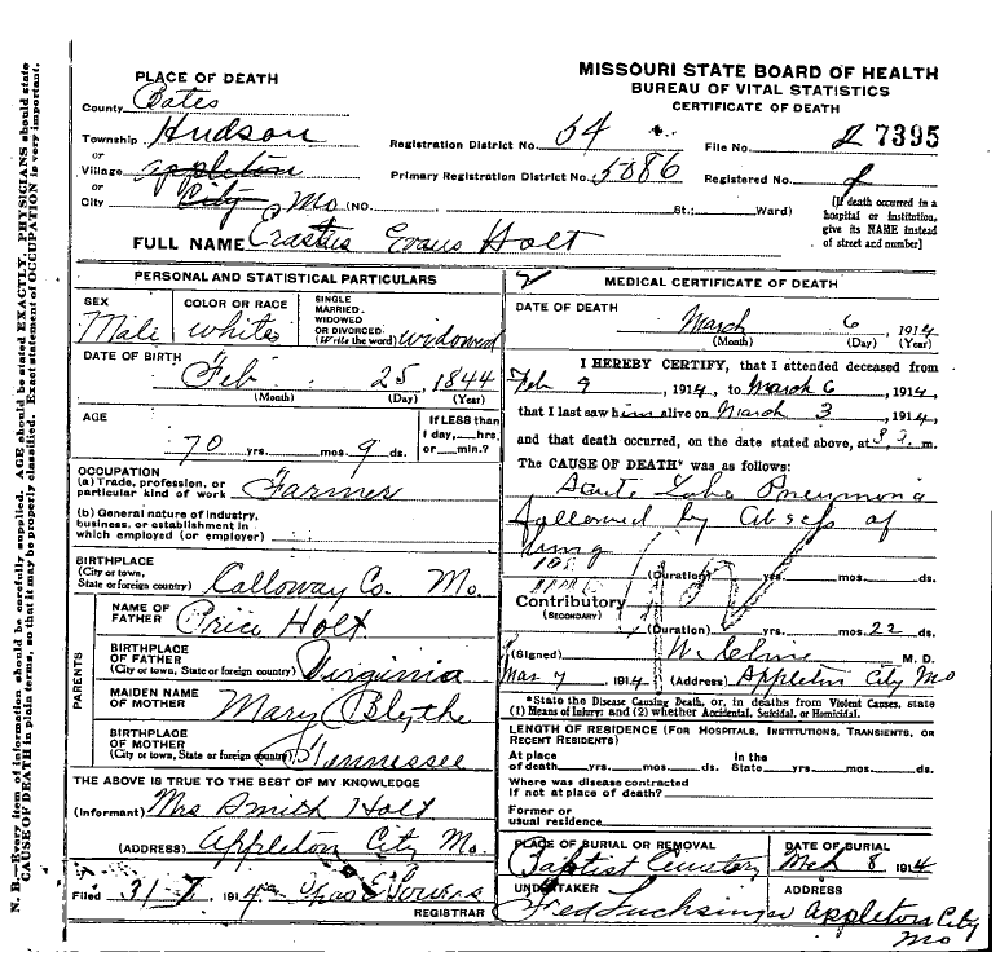 N. B.—Every item of information should be carefully supplied. AGE should be stated EXACTLY. PHYSICIANS should state
CAUSE OF DEATH in plain terms, so that it may be properly classified. Exact statement of OCCUPATION is very important.
MISSOURI STATE BOARD OF HEALTH
BUREAU OF VITAL STATISTICS
CERTIFICATE OF DEATH
PLACE OF DEATH
County Bates
Township Hudson
or
Village Appleton
or
City City, Mo (NO. St.; Ward)
Registration District No. 54
Primary Registration District No. 5086
File No. 7395
Registered No.
[If death occurred in a
hospital or institution,
give its NAME instead
of street and number]
FULL NAME Erastus Evans Holt
PERSONAL AND STATISTICAL PARTICULARS
SEX Male
COLOR OR RACE White
SINGLE
MARRIED
WIDOWED
OR DIVORCED
(Write the word) widowed
DATE OF BIRTH
Feb 25, 1844
(Month) (Day) (Year)
AGE
70 yrs. mos. 9 ds.
If LESS than
1 day, hrs.
or min.?
OCCUPATION
(a) Trade, profession, or
particular kind of work Farmer
(b) General nature of industry,
business, or establishment in
which employed (or employer)
BIRTHPLACE
(City or town,
State or foreign country) Calloway Co. Mo.
PARENTS
NAME OF
FATHER Price Holt
BIRTHPLACE
OF FATHER
(City or town, State or foreign country) Virginia
MAIDEN NAME
OF MOTHER Mary Blythe
BIRTHPLACE
OF MOTHER
(City or town, State or foreign country) Tennessee
THE ABOVE IS TRUE TO THE BEST OF MY KNOWLEDGE
(Informant) Mrs Smith Holt
(ADDRESS) Appleton City Mo.
Filed 1914
REGISTRAR
2 MEDICAL CERTIFICATE OF DEATH
DATE OF DEATH
March 6, 1914
(Month) (Day) (Year)
I HEREBY CERTIFY, that I attended deceased from
Feb 9 1914, to March 6 1914,
that I last saw him alive on March 3, 1914,
and that death occurred, on the date stated above, at m.
The CAUSE OF DEATH* was as follows:
Acute Loba Pneumonia
followed by Abscess of
lung
(Duration) yrs. mos. ds.
Contributory
(SECONDARY)
(Duration) yrs. mos. 22 ds.
(Signed) M. D.
Mar 7, 1914 (Address) Appleton City Mo
*State the Disease Causing Death, or, in deaths from Violent Causes, state
(1) Means of Injury; and (2) whether Accidental, Suicidal, or Homicidal.
LENGTH OF RESIDENCE (FOR HOSPITALS, INSTITUTIONS, TRANSIENTS, OR
RECENT RESIDENTS)
At place
of death yrs. mos. ds.
In the
State yrs. mos. ds.
Where was disease contracted
if not at place of death?
Former or
usual residence
PLACE OF BURIAL OR REMOVAL
Baptist Cemetery
DATE OF BURIAL
Mch 8 1914
UNDERTAKER
Fred Luchsinger
ADDRESS
Appleton City
Mo